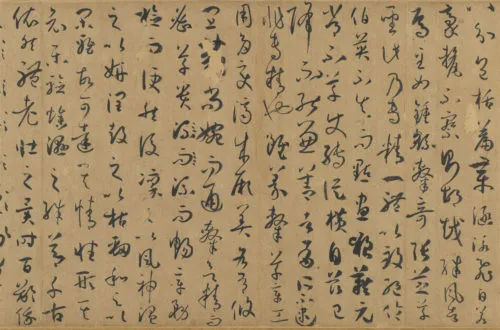 八分包括篇章涵泳飛白若
毫釐不察則胡越殊風者
焉至如鍾繇隸奇張芝草
聖此乃專精一體以致絕倫
伯英不真而點畫狼藉元
常不草使轉縱橫自茲已
降不能兼善者有所不逮
非專精也雖篆隸草章工
用多變濟成厥美各有攸
宜篆尚婉而通隸欲精而
密草貴流而暢章務
檢而便然後凜之以風神溫
之以妍潤鼓之以枯勁和之以
閑雅故可達其情性形其
哀樂驗燥濕之殊節千古
依然體老壯之異時百齡俄